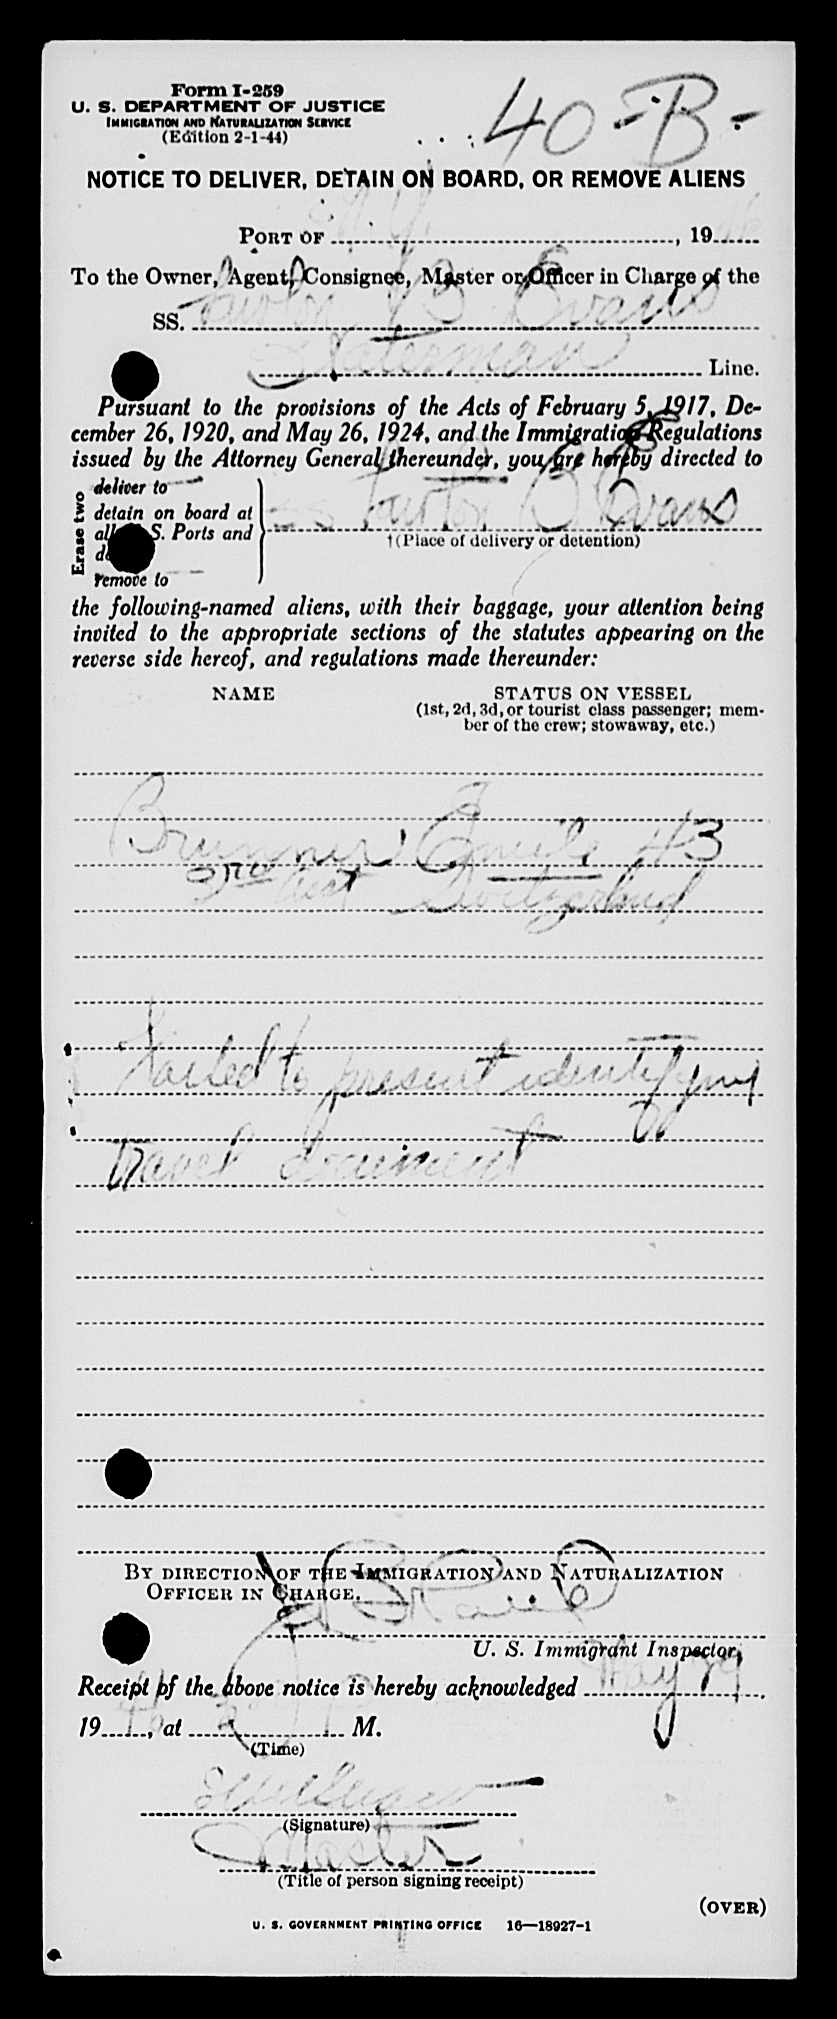 Form I-259
U. S. DEPARTMENT OF JUSTICE
IMMIGRATION AND NATURALIZATION SERVICE
(Edition 2-1-44)
40-B-
NOTICE TO DELIVER, DETAIN ON BOARD, OR REMOVE ALIENS
PORT OF N.Y., 1946
To the Owner, Agent, Consignee, Master or Officer in Charge of the
SS. Fawton B Evans
Waterman Line.
Pursuant to the provisions of the Acts of February 5, 1917, De-
cember 26, 1920, and May 26, 1924, and the Immigration Regulations
issued by the Attorney General thereunder, you are hereby directed to
Erase two
deliver to
detain on board at
all S. Ports and
remove to
SS Fawton B Evans
†(Place of delivery or detention)
the following-named aliens, with their baggage, your attention being
invited to the appropriate sections of the statutes appearing on the
reverse side hereof, and regulations made thereunder:
NAME
STATUS ON VESSEL
(1st, 2d, 3d, or tourist class passenger; mem-
ber of the crew; stowaway, etc.)
Brunner Emile 43
3rd Asst Switzerland
Failed to present identifying
travel document
BY DIRECTION OF THE IMMIGRATION AND NATURALIZATION
OFFICER IN CHARGE.
U. S. Immigrant Inspector.
Receipt of the above notice is hereby acknowledged May 29,
1946, at M.
(Time)
(Signature)
Master
(Title of person signing receipt)
(OVER)
U. S. GOVERNMENT PRINTING OFFICE 16—18927-1